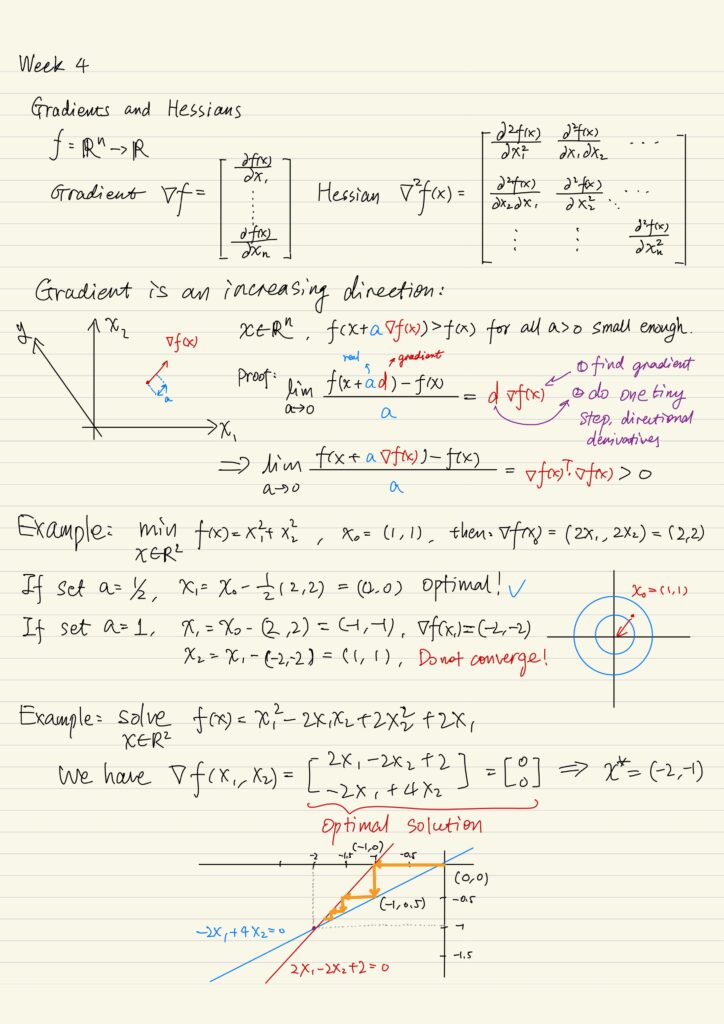 Week 4
Gradients and Hessians
f = ℝⁿ → ℝ
Gradient ∇f = [ ∂f(x)/∂x₁ ⋮ ∂f(x)/∂xₙ ] Hessian ∇²f(x) = [ ∂²f(x)/∂x₁² ∂²f(x)/∂x₁∂x₂ ⋯ ; ∂²f(x)/∂x₂∂x₁ ∂²f(x)/∂x₂² ⋯ ; ⋮ ⋮ ⋱ ∂²f(x)/∂xₙ² ]
Gradient is an increasing direction:
y x₂ ∇f(x) a x₁
x∈ℝⁿ, f(x+a∇f(x))>f(x) for all a>0 small enough.
real gradient
Proof: lim a→0 (f(x+ad)-f(x))/a = d ∇f(x)
① find gradient
② do one tiny
step, directional
derivatives
⇒ lim a→0 (f(x+a∇f(x))-f(x))/a = ∇f(x)ᵀ·∇f(x) > 0
Example: min x∈ℝ² f(x)=x₁²+x₂², x₀=(1,1), then: ∇f(x)=(2x₁,2x₂)=(2,2)
If set a=½, x₁=x₀-½(2,2)=(0,0) optimal! ✓
x₀=(1,1)
If set a=1, x₁=x₀-(2,2)=(-1,-1), ∇f(x₁)=(-2,-2)
x₂=x₁-(-2,-2)=(1,1), Do not converge!
Example: solve x∈ℝ² f(x)=x₁²-2x₁x₂+2x₂²+2x₁
We have ∇f(x₁,x₂)=[ 2x₁-2x₂+2 ; -2x₁+4x₂ ]=[ 0 ; 0 ] ⇒ x*=(-2,-1)
optimal solution
(-1,0)
-2 -1.5 -1 -0.5
(0,0)
(-1,0.5)
-0.5
-1
-1.5
-2x₁+4x₂=0
2x₁-2x₂+2=0